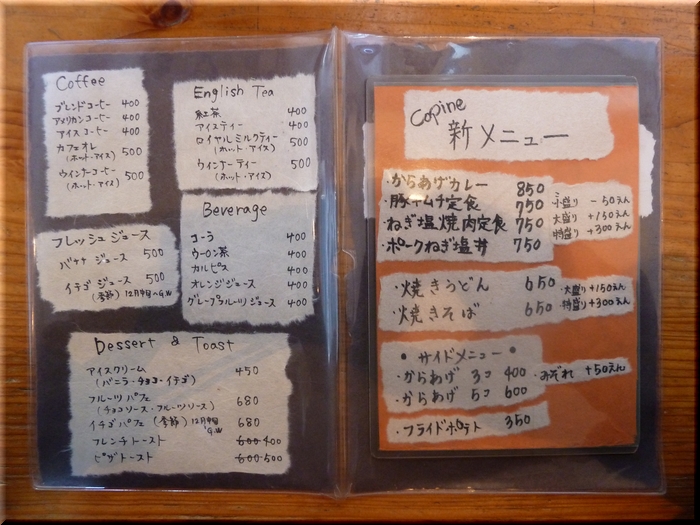 Coffee
ブレンドコーヒー 400
アメリカンコーヒー 400
アイスコーヒー 400
カフェオレ 500
(ホット・アイス)
ウインナーコーヒー 500
(ホット・アイス)
English Tea
紅茶 400
アイスティー 400
ロイヤルミルクティー 500
(ホット・アイス)
ウインナーティー 500
(ホット・アイス)
フレッシュジュース
バナナジュース 500
イチゴジュース 500
(季節) 12月中旬〜G.W
Beverage
コーラ 400
ウーロン茶 400
カルピス 400
オレンジジュース 400
グレープフルーツジュース 400
Dessert & Toast
アイスクリーム 450
(バニラ・チョコ・イチゴ)
フルーツパフェ 680
(チョコソース・フルーツソース)
イチゴパフェ (季節) 12月中旬 G.W 680
フレンチトースト 600 400
ピザトースト 600 500
Copine
新メニュー
・からあげカレー 850
・豚キムチ定食 750
・ねぎ塩焼肉定食 750
・ポークねぎ塩丼 750
小盛り -50えん
大盛り +150えん
特盛り +300えん
・焼きうどん 650
・焼きそば 650
・大盛り +150えん
特盛り +300えん
・サイドメニュー・
・からあげ 3コ 400
・みぞれ +50えん
・からあげ 5コ 600
・フライドポテト 350